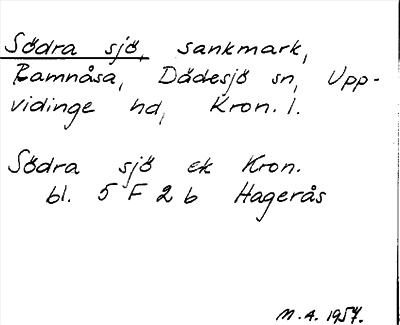 Södra sjö, sankmark,
Ramnåsa, Dädesjö sn, Upp-
vidinge hd, Kron. l.
Södra sjö ek Kron.
bl. 5 F 2 b Hagerås
M. A. 1957.